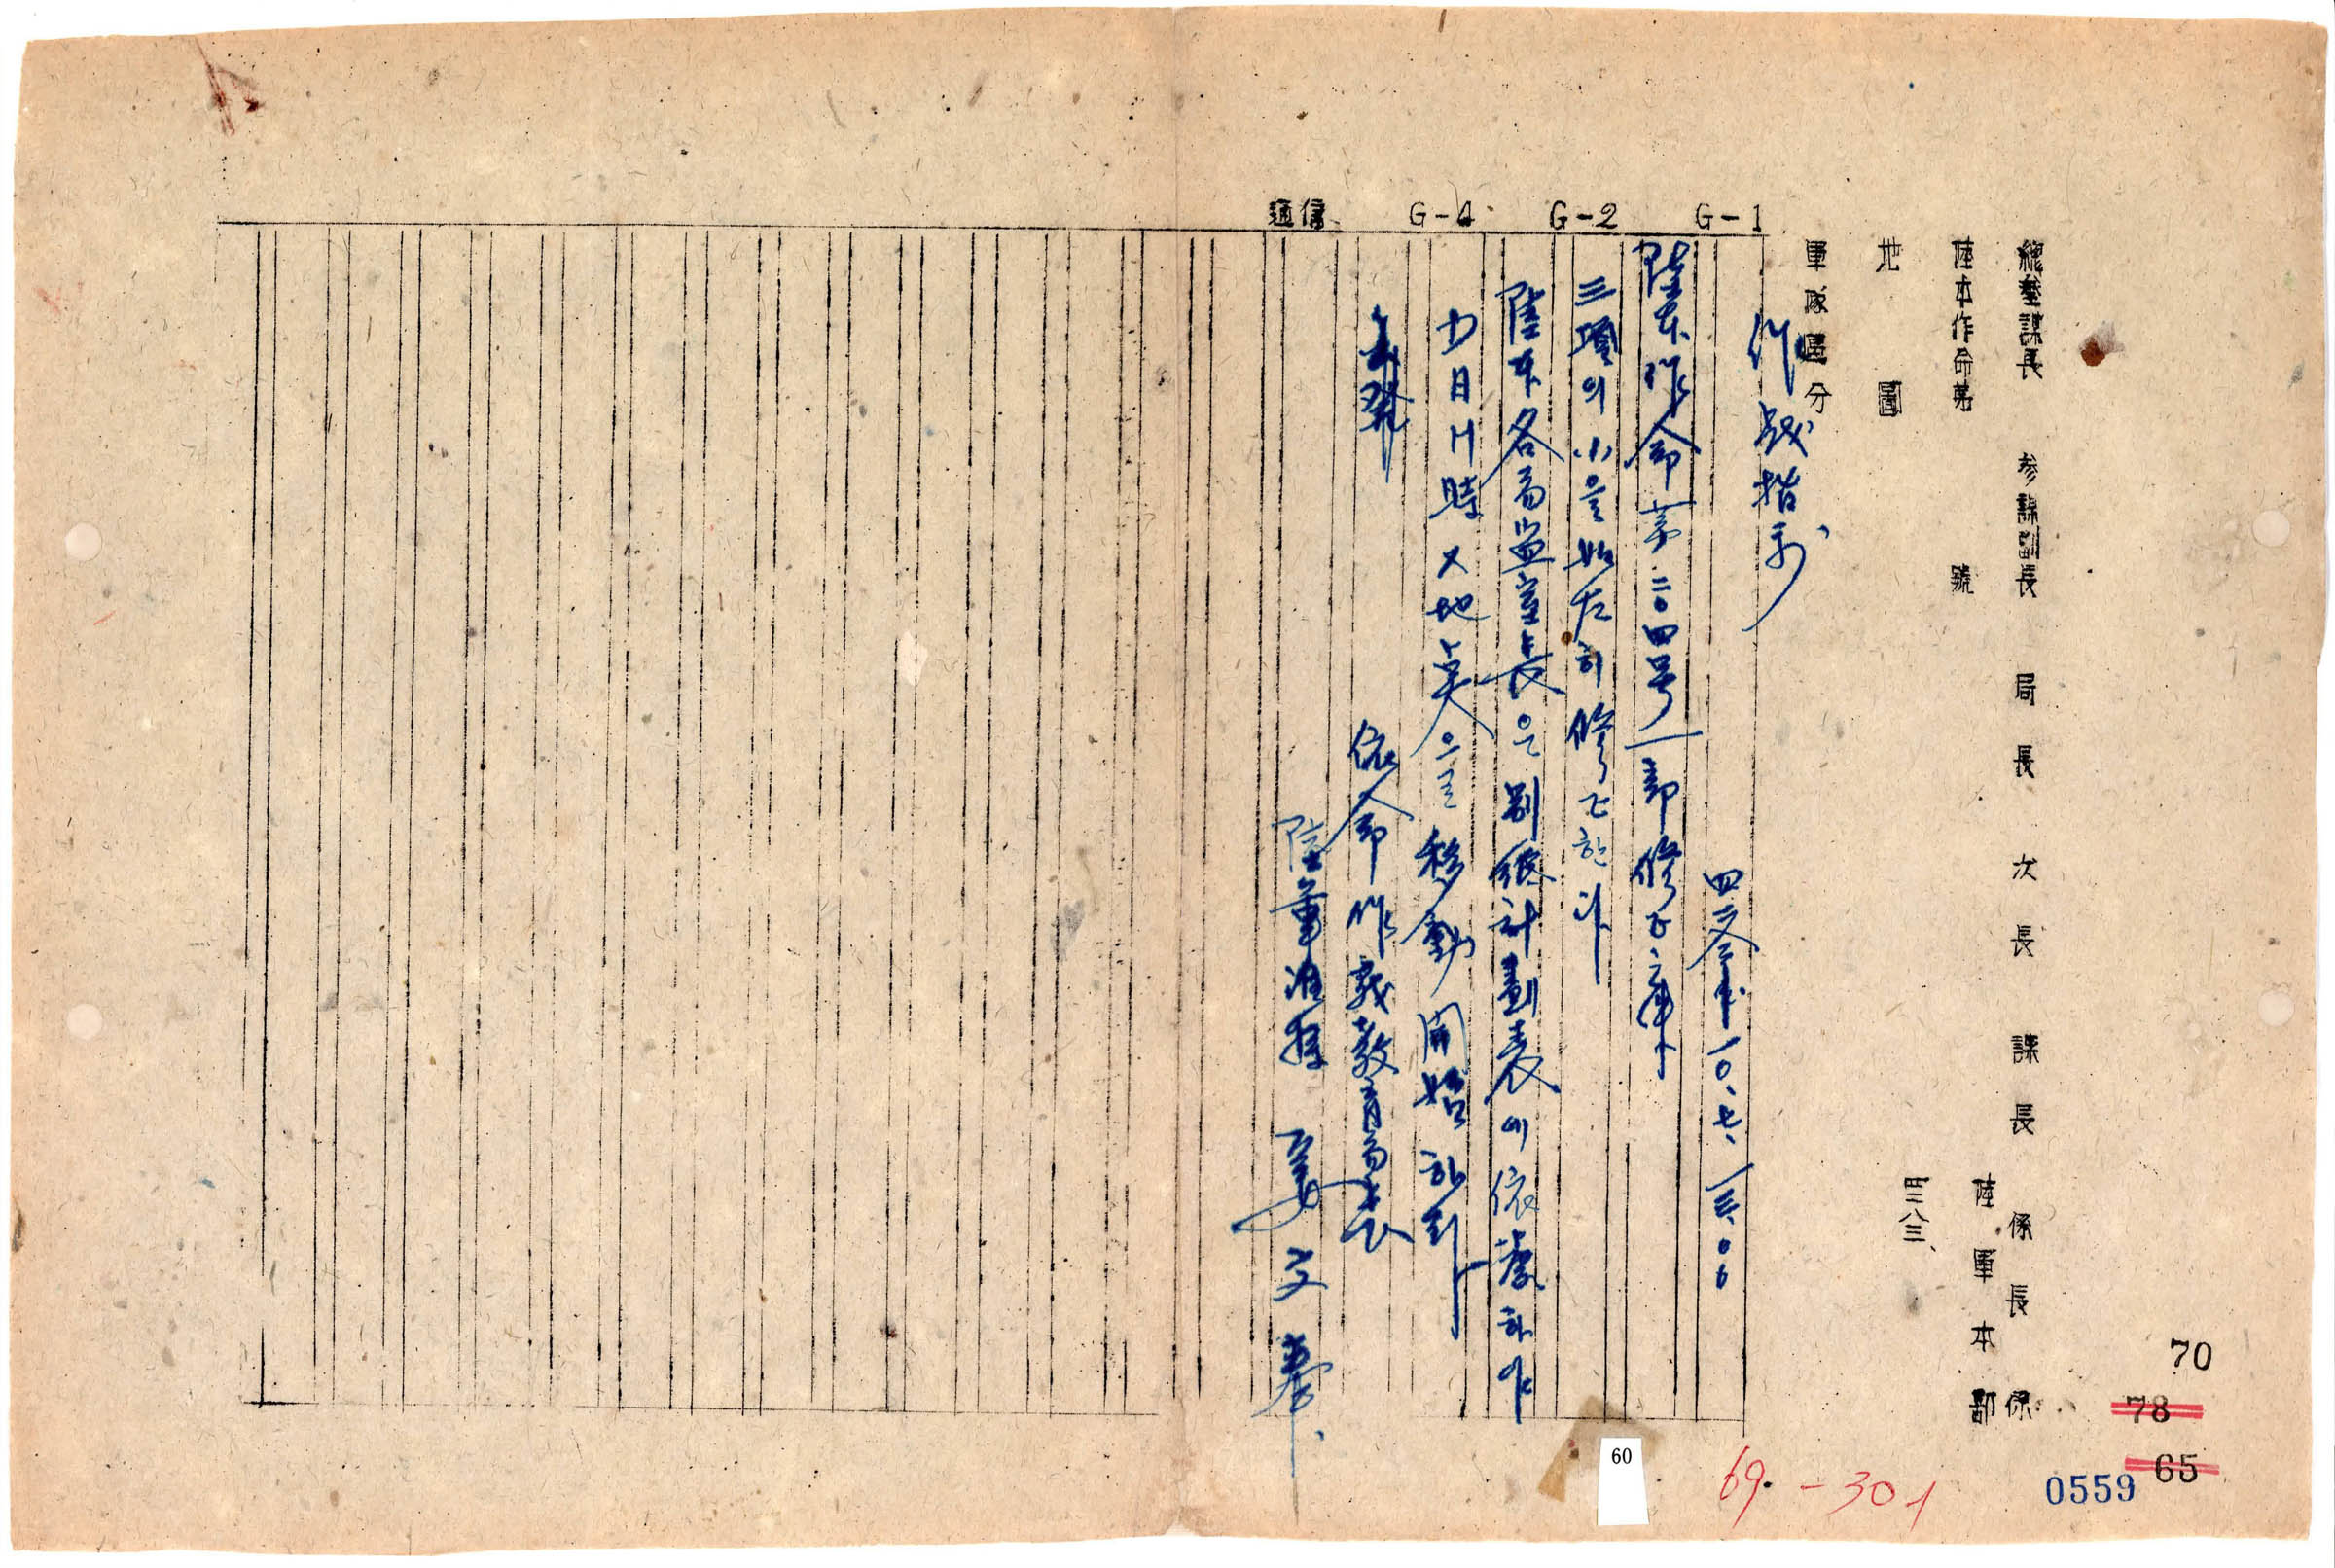 總參謀長 参謀副長 局長 次長 課長 係長 係
陸本作命第 號 陸軍本部
地圖 四二八三、
軍隊區分
G-1
G-2
G-4
通信
作戰指示
四二八三年 一〇、七、一三、〇〇
陸本作命第二〇四号一部修正의 件
三項의 小을 如左히 修正한다
陸本各局監室長은 別紙計劃表에 依據하야
D日H時 X地點으로 移動 開始 하라
依命作戰敎育局長
陸軍准將 姜文奉
70
78
65
0559
60
69. - 301